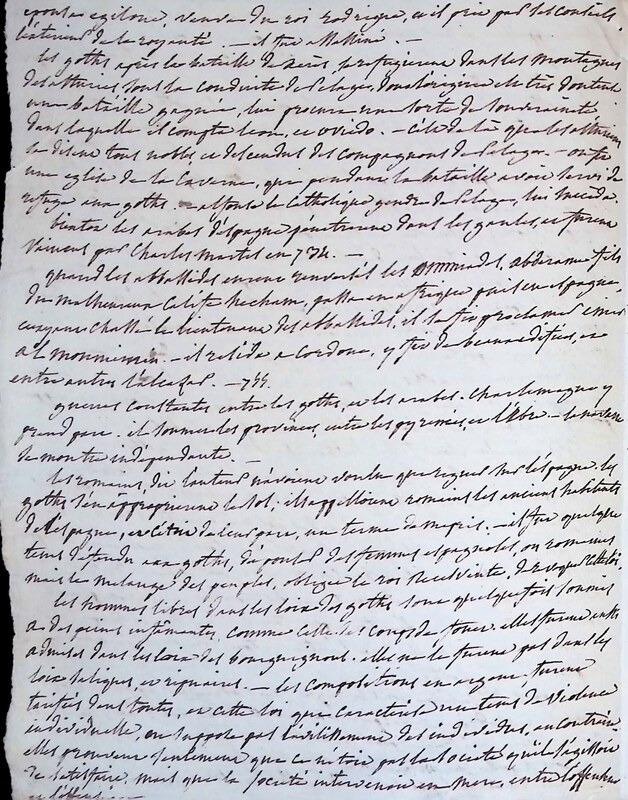 épousa egilone, veuve du roi rodrigue, et il prit par ses conseils
les tems de la royauté. — il fut assassiné. —
les goths après la bataille de Xérès, se refugièrent dans les montagnes
des asturies, sous la conduite de Pélage, dont l'origine est très douteuse
une bataille gagnée, lui procura une sorte de souveraineté
dans laquelle il compta leon, et oviedo. — c'est de là que les asturiens
se disent tous nobles, et descendus des compagnons de Pélage. — on fit
une eglise de la Caverne, qui pendant la bataille avoit servi de
refuge aux goths. — alfonse le Catholique gendre de Pelage, lui succéda.
bientôt les arabes d'espagne penetrerent dans les gaules, et furent
vaincus par Charles martel en 732. —
quand les abbassides eurent renversés les Ommiades, abderame fils
du malheureux calife hecham, passa en afrique puis en espagne,
et ayant chassé le lieutenant des abbassides, il se fit proclamer émir
al moumenin. — il resida a cordoue, y fit de beaux édifices, et
entre autres l'alcasar. — 755.
guerres constantes entre les goths, et les arabes. Charlemagne y
prend part. il soumet les provinces, entre les pyrenées, et l'èbre. — la navarre
se montre indépendante. —
les romains, dit l'auteur n'avoient voulu que regner sur l'espagne. les
goths s'en approprièrent le sol; ils appelloient romains les anciens habitants
de l'espagne, et c'étoit de leur part, un terme de mepris. — il fut quelque
tems défendu aux goths, d'épouser des femmes espagnoles, ou romaines
mais le melange des peuples, obligea le roi Recesvinte, de revoquer cette loi
les hommes libres dans les loix des goths sont quelque fois soumis
a des peines infâmantes, comme celle des coups de fouet. elles furent aussi
admises dans les loix des bourguignons. elles ne le furent pas dans les
loix saliques, et ripuaires. — les compositions en argent furent
tarifées dans toutes, et cette loi qui caractérise un tems de violence
individuelle, ne suppose pas l'avilissement des individus, au contraire
elles prouvent seulement que ce n'étoit pas la société qu'il s'agissoit
de satisfaire, mais que la société intervenoit en tiers, entre l'offenseur
et l'offensé —